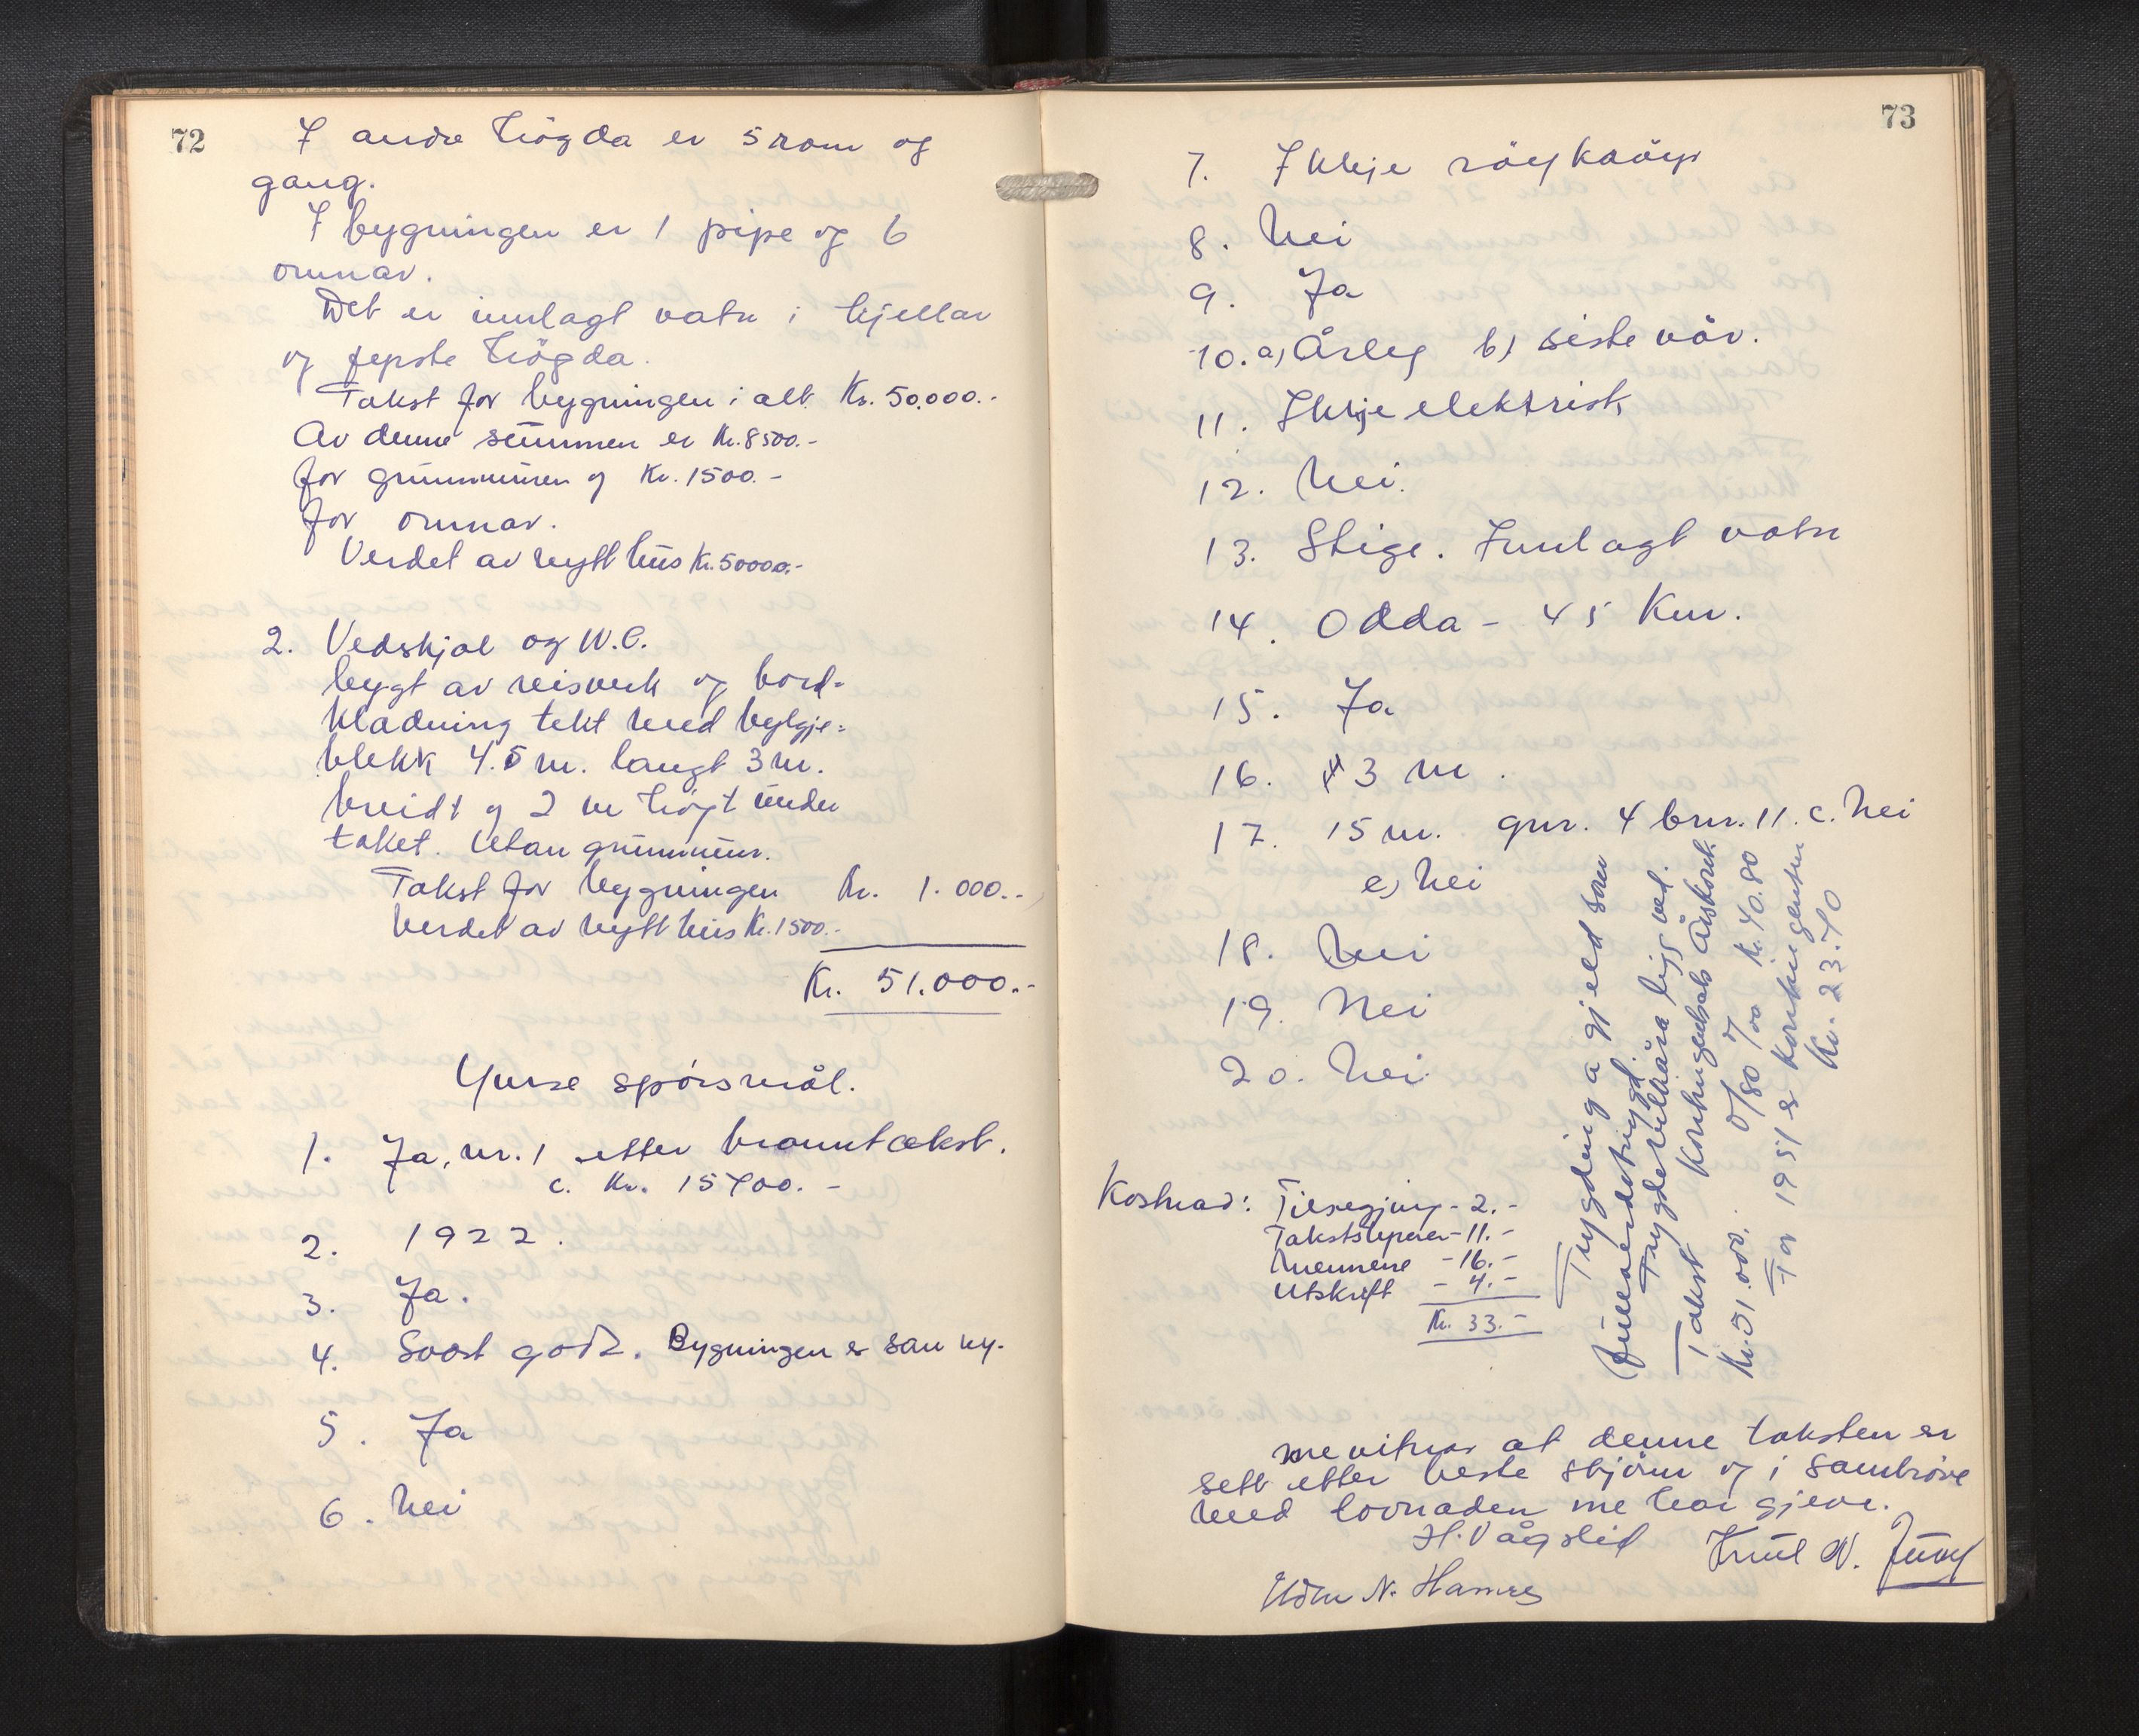 72
I andre högda er 5 rom og
gang.
I bygningen er 1 pipe og 6
omnar.
Det er innlagt vatn i kjellar
og fyrste högda.
Takst for bygningen i alt Kr. 50.000.-
Av denne summen er Kr. 8500.-
for grunnmuren og Kr. 1500.-
for omnar.
Verdet av nytt hus Kr. 50000.-
2. Vedskjol og W.C.
bygt av reisverk og bord-
kladning tekt med bylgje-
blekk 4.5 m. langt 3 m.
breidt og 2 m högt under
taket. Utan grunnmur.
Takst for bygningen Kr. 1.000.-
Verdet av nytt hus Kr. 1500.-
Kr. 51.000.-
Ymse spörsmål.
1. Ja, nr. 1 etter branntakst.
c. Kr. 15700.-
2. 1922.
3. Ja.
4. Svært godt. Bygningen er som ny.
5. Ja
6. Nei
73
7. Ikkje
8. Nei
9. Ja
10. a) Årleg b) siste vår.
11. Ikkje elektrisk
12. Nei.
13. Stige. Innlagt vatn
14. Odda - 45 Km.
15. Ja
16. 3 m.
17. 15 m. gnr. 4 bnr. 11. c. Nei
e) Nei
18. Nei
19. Nei
20. Nei
Kostnad: Tilsegjing - 2.-
Takststyrar - 11.-
Mennene - 16.-
Utskrift - 4.-
Kr. 33.-
Trygding a gjeld som
fulverdetrygd.
Trygdevilkåra ligg ved.
Takst Kontingentsats Årskont.
Kr. 51.000.- 0/80 0/00 Kr. 40.80
For 1951 er kontingenten
Kr. 23.70
Me vitnar at denne taksten er
sett etter beste skjönn og i samhöve
med lovnaden me har gjeve.
H. Vågslid Knut N. Juvet
N. Hamre